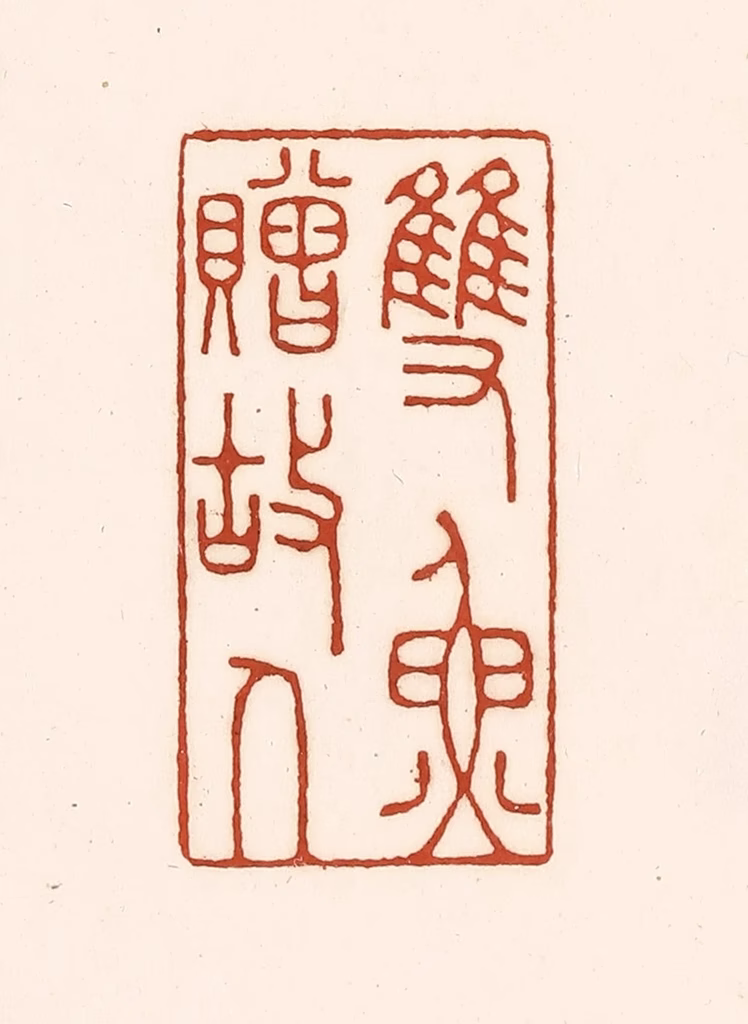 雙魚
贈故人